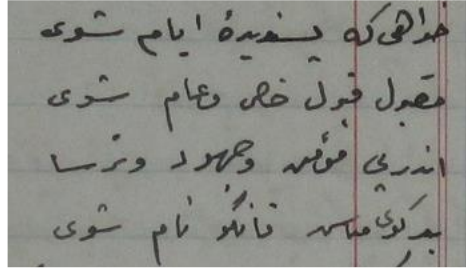 خواهی که پسندیدهٔ ایام شوی
مقبول قبول خاص و عام شوی
اندر پی مؤمن و جهود و ترسا
بدگوی مباش تا نکو نام شوی